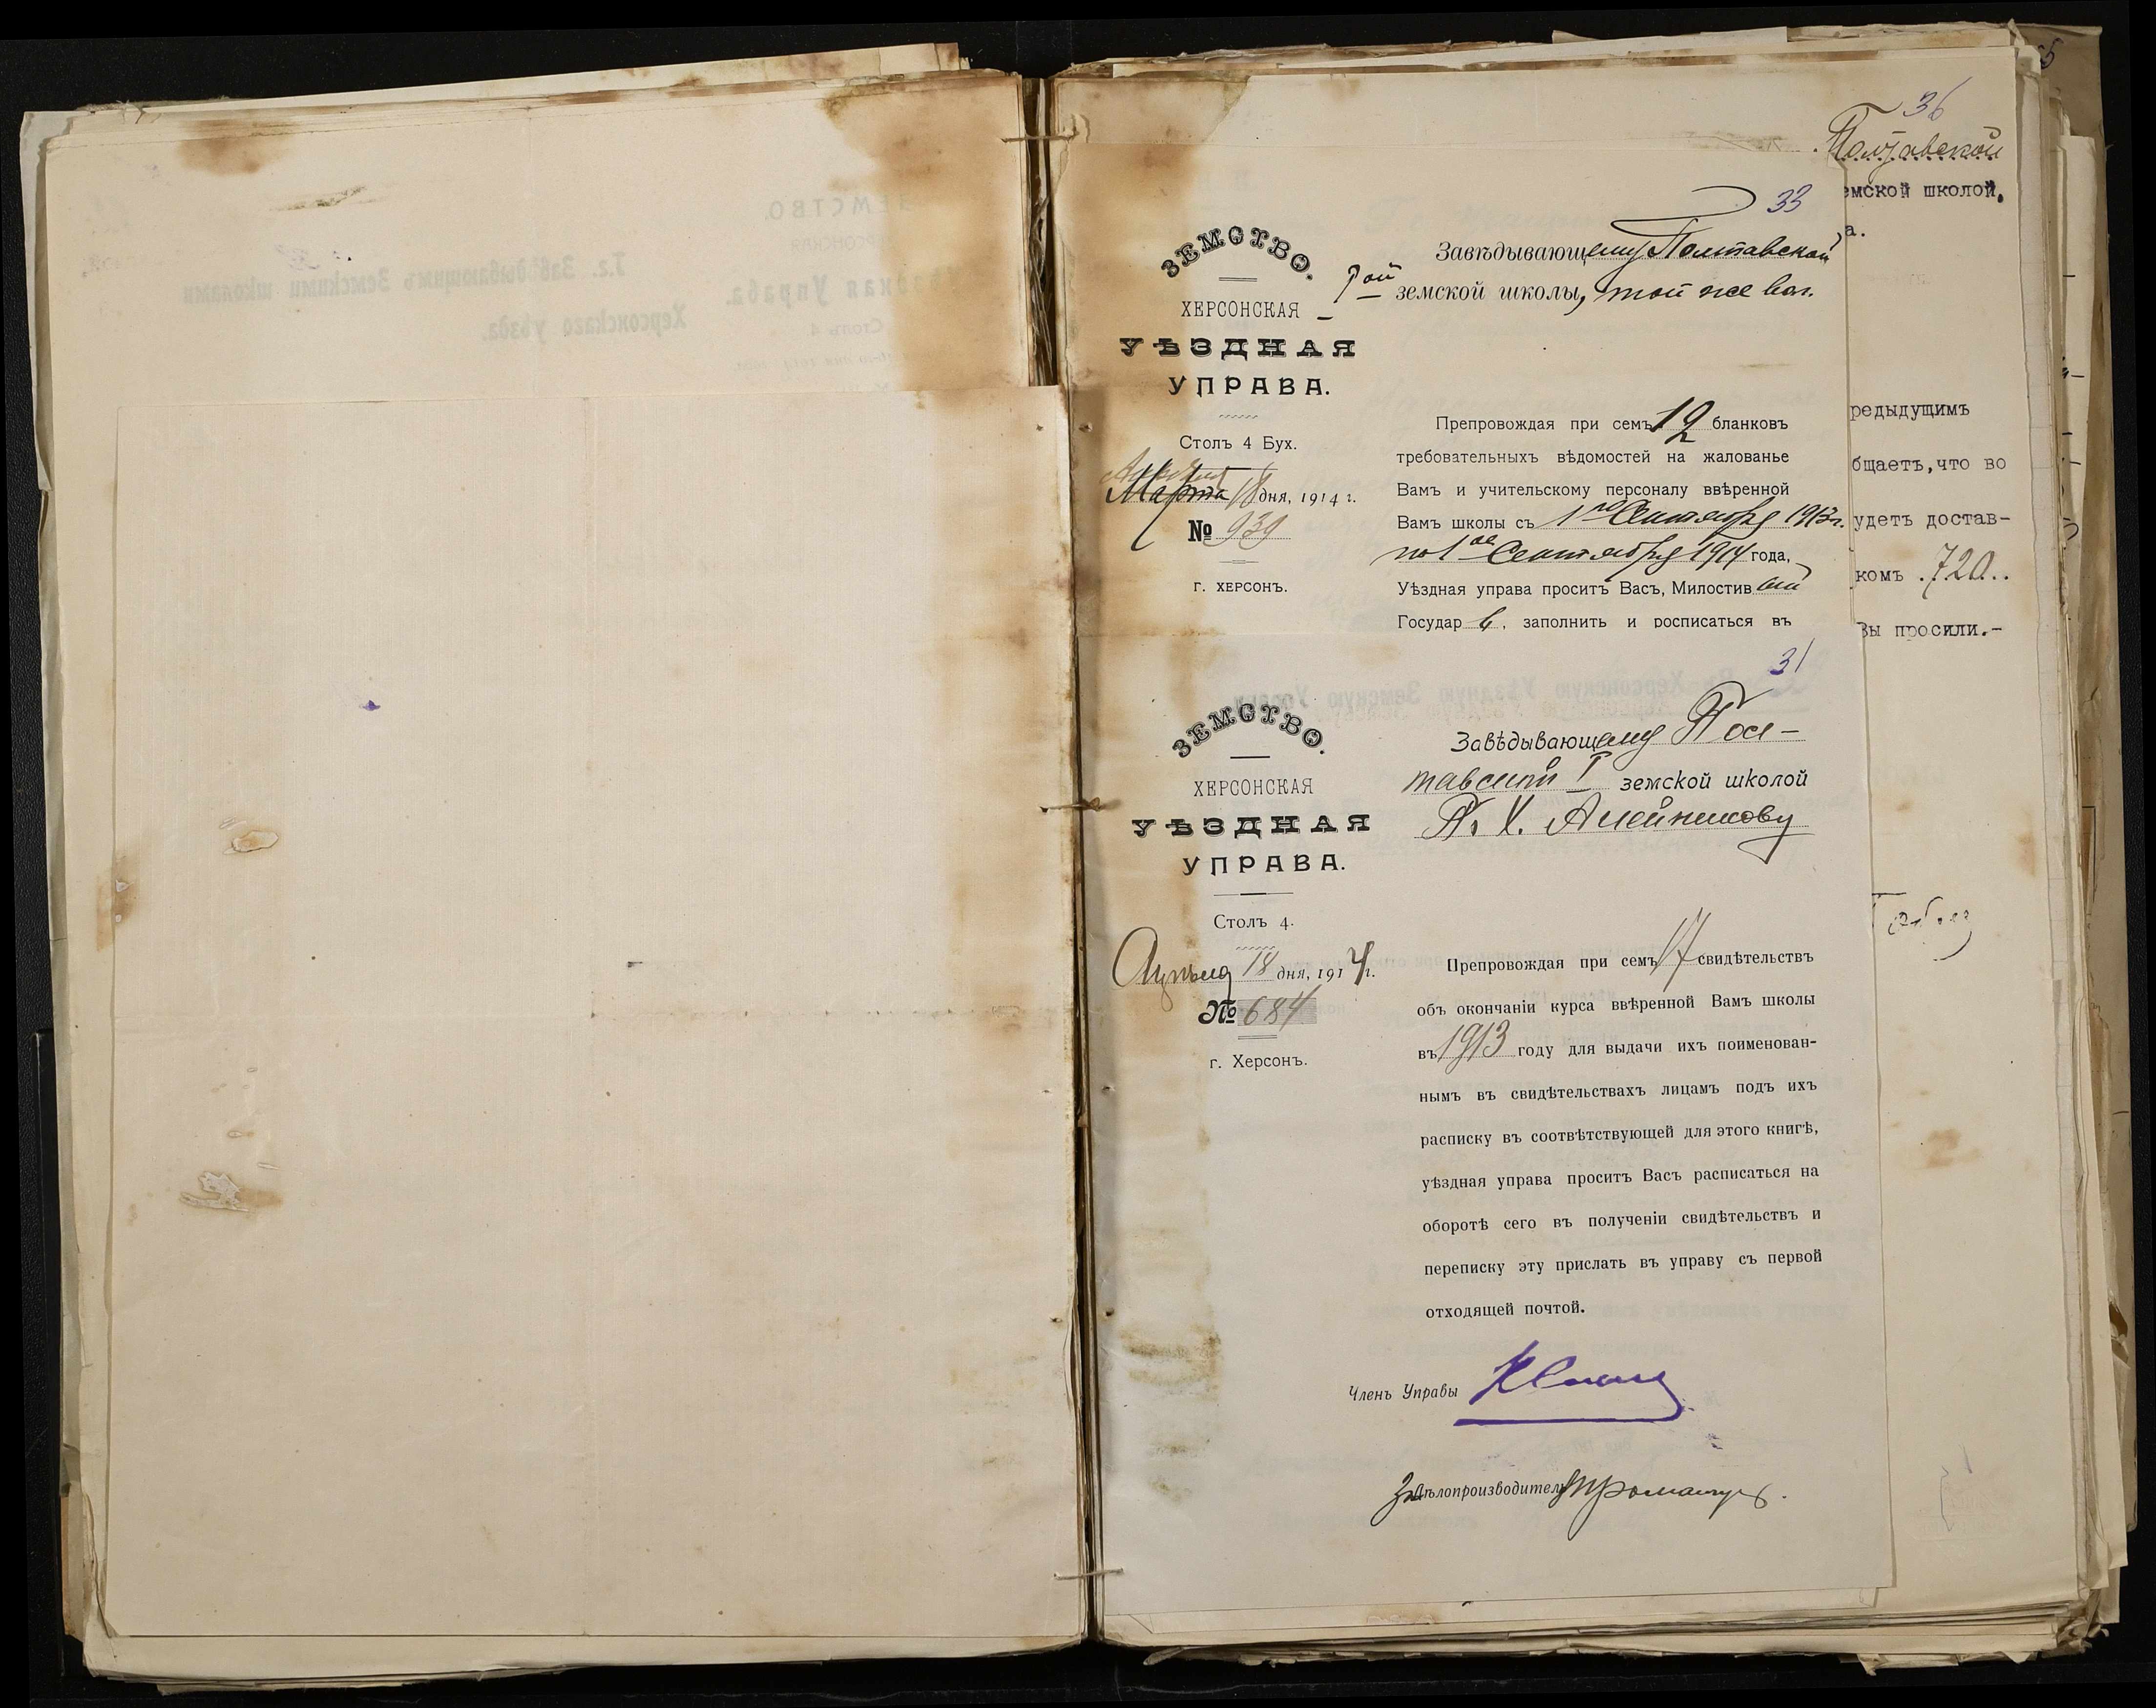 36
Полтавской
емской школой.
а.
33
ЗЕМСТВО.
ХЕРСОНСКАЯ
УѢЗДНАЯ
УПРАВА.
Столъ 4 Бух.
Марта 18 дня, 1914 г.
№ 939
г. ХЕРСОНЪ.
Завѣдывающему Полтавской
земской школы, той же вол.
Препровождая при семъ 12 бланковъ
требовательныхъ вѣдомостей на жалованье
Вамъ и учительскому персоналу ввѣренной
Вамъ школы съ 1го Сентября 1913 г.
по 1ое Сентября 1914 года,
Уѣздная управа проситъ Васъ, Милостивый
Государь, заполнить и росписаться въ
редыдущимъ
бщаетъ,что во
удетъ достав-
комъ .720..
Вы просили.-
31
ЗЕМСТВО.
ХЕРСОНСКАЯ
УѢЗДНАЯ
УПРАВА.
Столъ 4.
Апрѣля 18 дня, 1914 г.
№ 684
г. Херсонъ.
Завѣдывающему Пол-
тавской I земской школой
П. Х. Алейникову
Препровождая при семъ 17 свидѣтельствъ
объ окончаніи курса ввѣренной Вамъ школы
въ 1913 году для выдачи ихъ поименован-
нымъ въ свидѣтельствахъ лицамъ подъ ихъ
расписку въ соотвѣтствующей для этого книгѣ,
уѣздная управа проситъ Васъ расписаться на
оборотѣ сего въ полученіи свидѣтельствъ и
переписку эту прислать въ управу съ первой
отходящей почтой.
Членъ Управы
За Дѣлопроизводителя